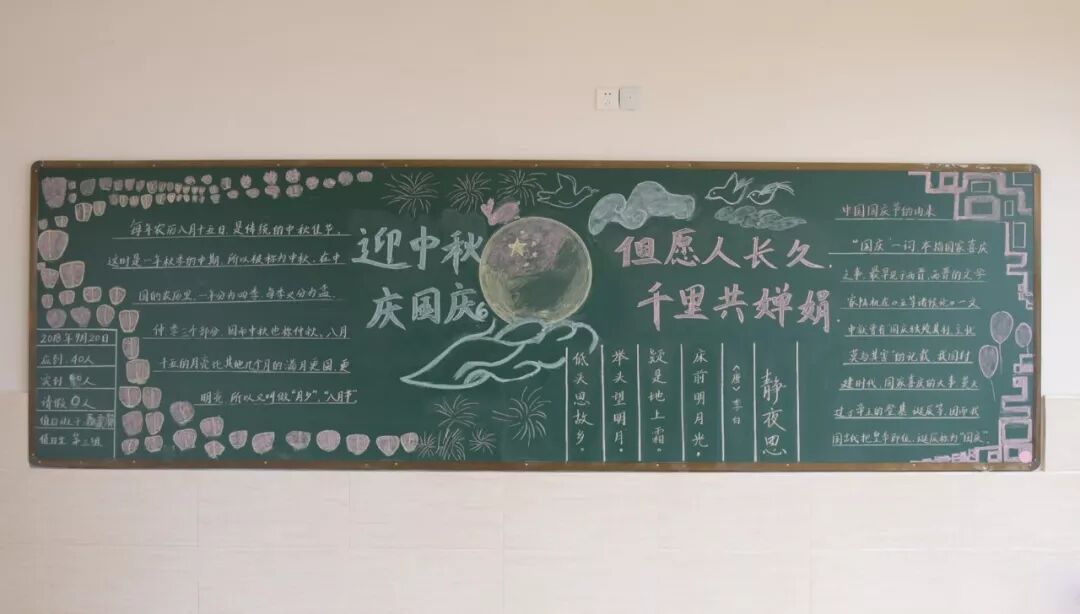 每年农历八月十五日,是传统的中秋佳节。
这时是一年秋季的中期,所以被称为中秋。在中
国的农历里,一年分为四季,每季又分为孟、
仲、季三个部分,因而中秋也称仲秋。八月
十五的月亮比其他几个月的满月更圆,更
明亮,所以又叫做“月夕”,“八月节”
2018年9月20日
应到:40人
实到 人
请假 0人
值日班干:
值日生 第三组
迎中秋
庆国庆
但愿人长久,
千里共婵娟
静夜思
《唐》李白
床前明月光,
疑是地上霜。
举头望明月,
低头思故乡。
中国国庆节的由来
“国庆”一词,本指国家喜庆
之事,最早见于西晋。西晋的文学
家陆机在《五等诸侯论》一文
中就曾有“国庆独飨其利,主忧
莫与其害”的记载,我国封
建时代,国家喜庆的大事,莫大
过于帝王的登基、诞辰等。因而我
国古代把皇帝即位、诞辰称为“国庆”。